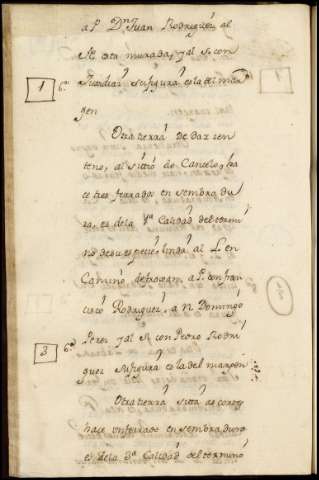 a P. Dn Juan Rodriguez, al
N. otra murada, y al S. con
1 6ª Guardiaz Su figura es la del mar
gen
Otra tierra de dar cen
teno, al sitio de Cancelo, ha
ce tres ferrados en sembradu
ra, es de la 3ª Calidad del termi
no de su especie, linda al L. en
Camino de trogeam, a P. con fran
cisco Rodriguez, a N. Domingo
Perez y al S. con Pedro Rodri
3 6ª guez Su figura es la del margen
Otra tierra sitta as coroas
hace un ferrado en sembraduro
es de la 3ª Calidad del termino